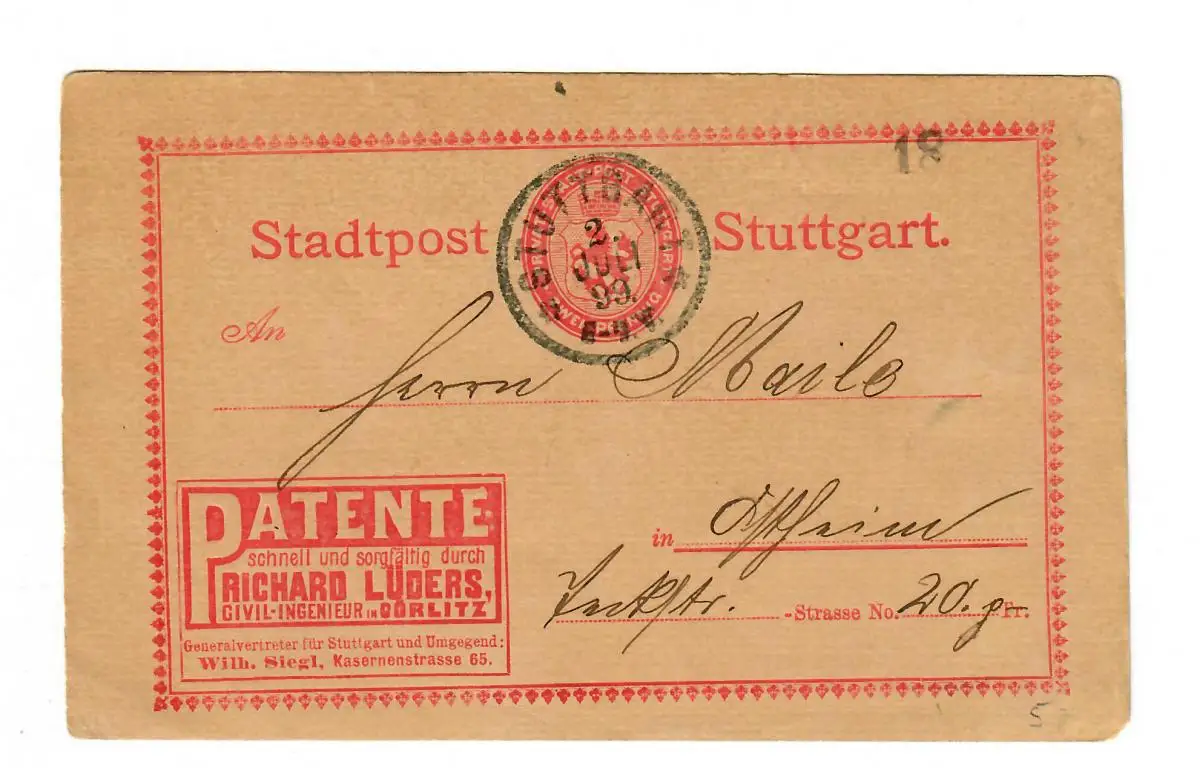 18
Stadtpost Stuttgart.
PRIVAT-STADTPOST STUTTGART
ZWEI PFENNIG
STUTTGART
2.
JULI
99.
An
Herrn Maile
PATENTE
schnell und sorgfältig durch
RICHARD LÜDERS,
CIVIL-INGENIEUR IN GÖRLITZ
Generalvertreter für Stuttgart und Umgegend:
Wilh. Siegl, Kasernenstrasse 65.
in Ostheim
Teckstr. -Strasse No. 20. p Tr.
5